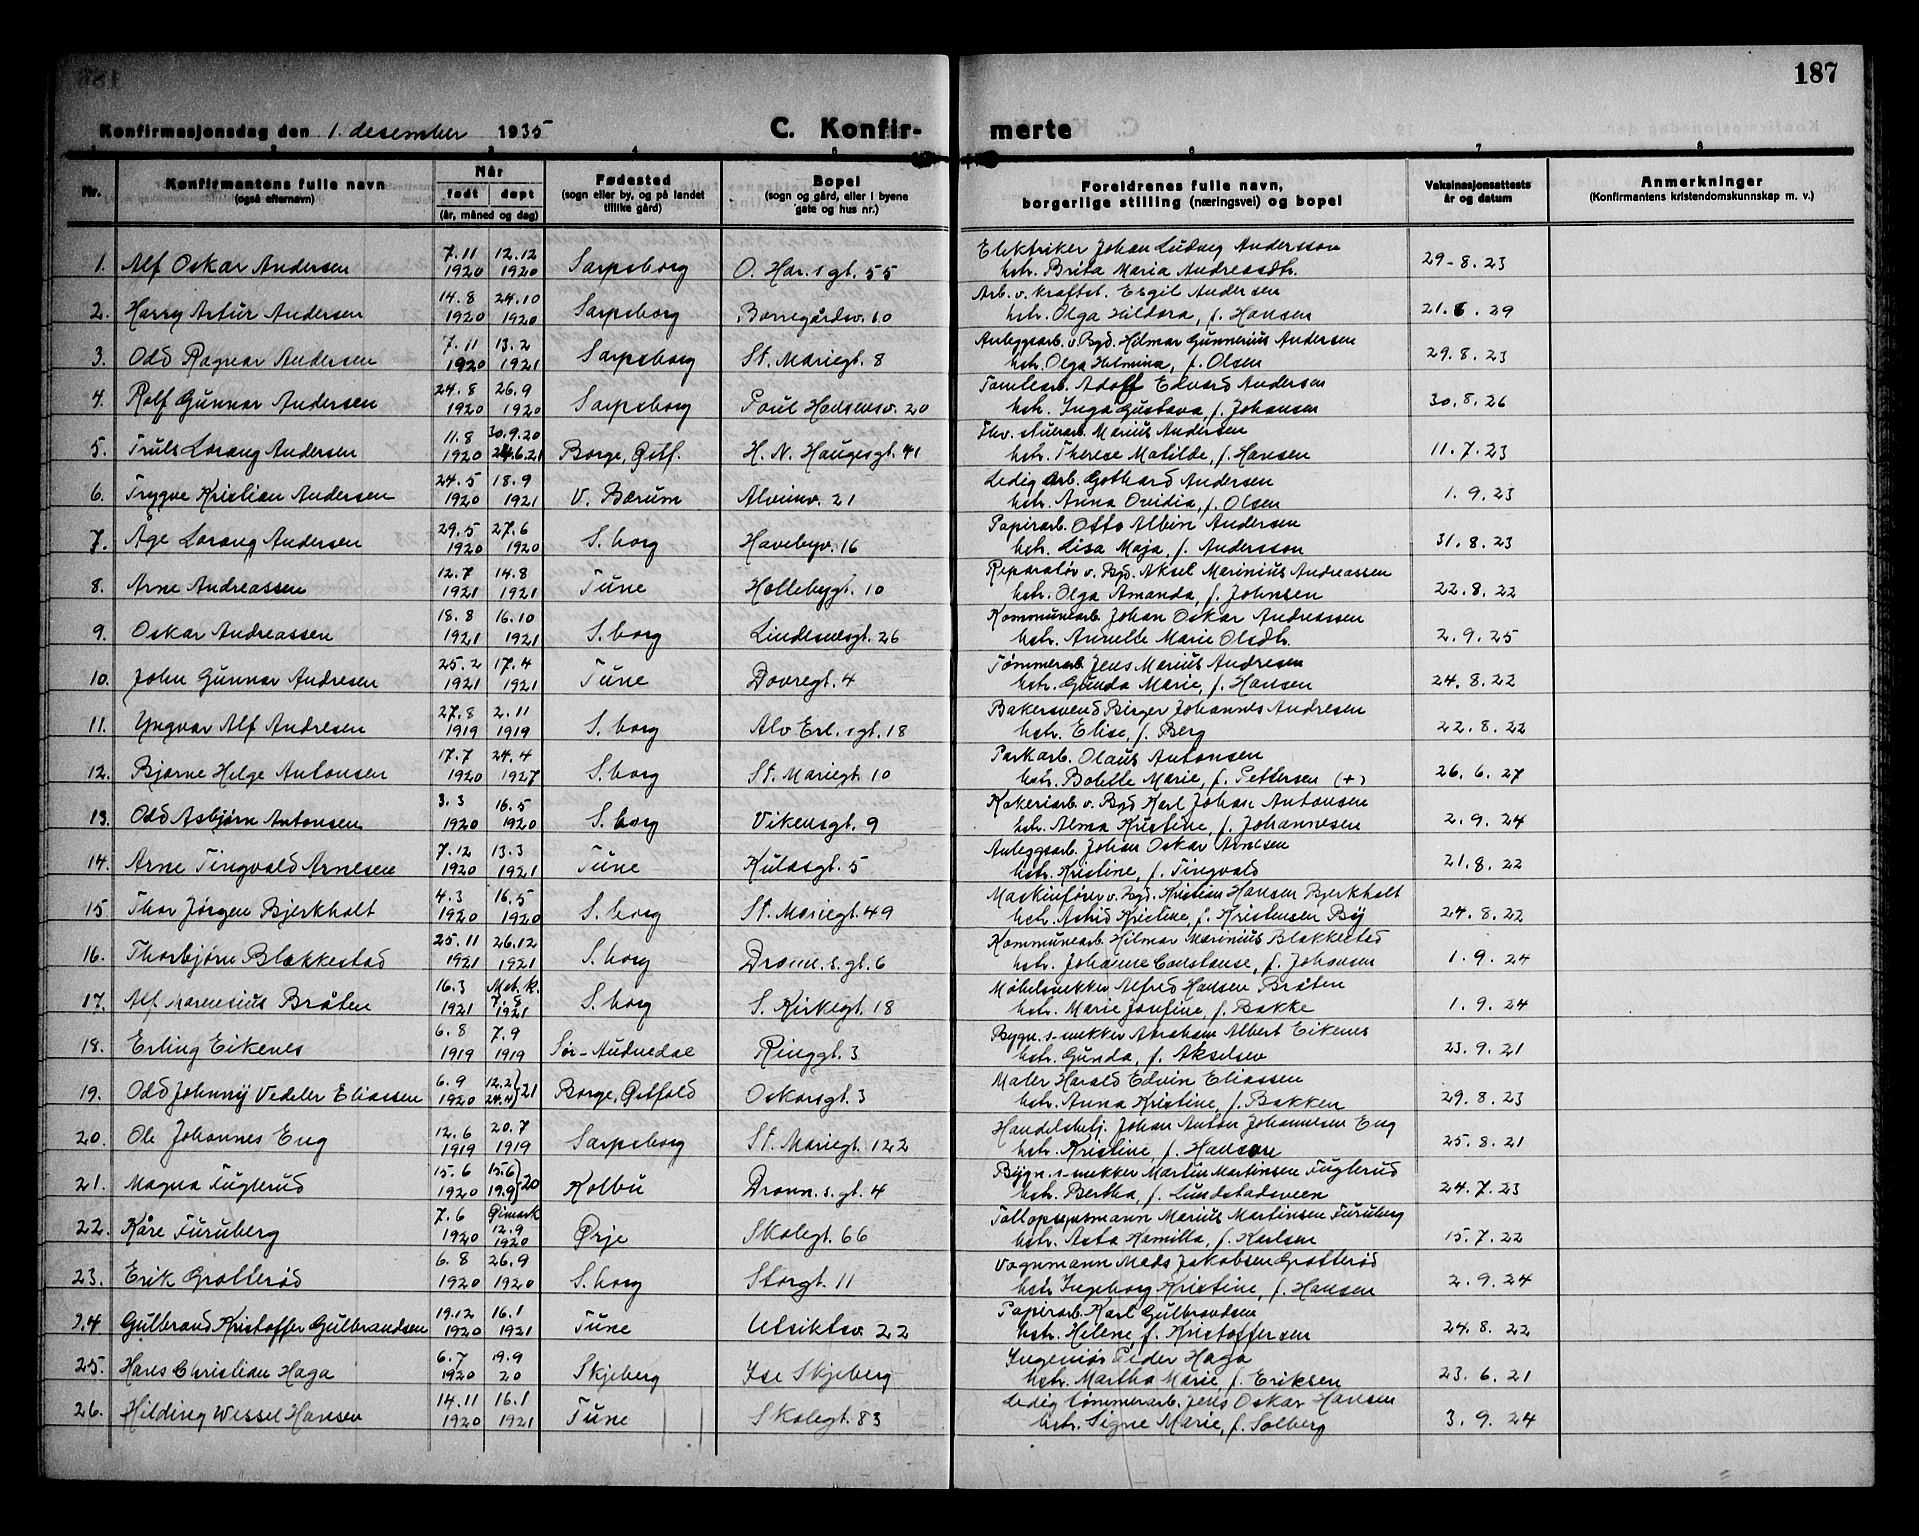 187
Konfirmasjonsdag den 1. desember 1935 C. Konfir- merte
1 2 3 4 5 6 7 8
Nr. Konfirmantens fulle navn (også efternavn) Når født døpt (år, måned og dag) Fødested (sogn eller by, og på landet tillike gård) Bopel (sogn og gård, eller i byene gate og hus nr.) Foreldrenes fulle navn, borgerlige stilling (næringsvei) og bopel Vaksinasjonsattests år og datum Anmerkninger (Konfirmantens kristendomskunnskap m. v.)
1. Alf Oskar Andersen 7.11 1920 12.12 1920 Sarpsborg O. Har.sgt. 55 Elektriker Johan Ludvig Andersson hstr. Brita Maria Andreasdtr. 29-8.23
2. Harry Artur Andersen 14.8 1920 24.10 1920 Sarpsborg Borregårdsv. 10 Arb. v. kraftst. Esgil Andersen hstr. Olga Hildora, f. Hansen 21.6.29
3. Odd Ragnar Andersen 7.11 1920 13.2 1921 Sarpsborg St. Mariegt. 8 Anleggsarb. v. Bgd. Hilmar Gunnerius Andersen hstr. Olga Helmina, f. Olsen 29.8.23
4. Rolf Gunnar Andersen 24.8 1920 26.9 1920 Sarpsborg Poul Hansensv. 20 Tomtearb. Adolf Edvard Andersen hstr. Inga Gustava, f. Johansen 30.8.26
5. Truls Lorang Andersen 11.8 1920 30.9.20 24.6.21 Borge, Østf. H. N. Haugesgt. 41 Thv. stuerarb. Marius Andersen hstr. Therese Matilde, f. Hansen 11.7.23
6. Trygve Kristian Andersen 24.5 1920 18.9 1921 V. Bærum Alveimv. 21 Ledig arb. Gothard Andersen hstr. Anna Ovidia, f. Olsen 1.9.23
7. Åge Lorang Andersen 29.5 1920 27.6 1920 S.borg Havebyv. 16 Papirarb. Otto Albin Andersen hstr. Lisa Maja, f. Andersson 31.8.23
8. Arne Andreassen 12.7 1921 14.8 1921 Tune Hollebygt. 10 Reparatør v. Bgd. Aksel Marinius Andreassen hstr. Olga Amanda, f. Johnsen 22.8.22
9. Oskar Andreassen 18.8 1921 16.10 1921 S.borg Lindesnesgt. 26 Kommunearb. Johan Oskar Andreassen hstr. Annette Marie Olsdtr. 2.9.25
10. John Gunnar Andresen 25.2 1921 17.4 1921 Tune Dovregt. 4 Tømmerarb. Jens Marius Andresen hstr. Gunda Marie, f. Hansen 24.8.22
11. Yngvar Alf Andresen 27.8 1919 2.11 1919 S.borg Alv Erl.sgt. 18 Bakersvend Birger Johannes Andresen hstr. Elise, f. Berg 22.8.22
12. Bjarne Helge Antonsen 17.7 1920 24.4 1927 S.borg St. Mariegt. 10 Parkarb. Olaus Antonsen hstr. Bolette Marie, f. Pettersen (+) 26.6.27
13. Odd Asbjørn Antonsen 3.3 1920 16.5 1920 S.borg Vikensgt. 9 Kokeriarb. v. Bgd Karl Johan Antonsen hstr. Alma Kristine, f. Johannesen 2.9.24
14. Arne Tingvald Arnesen 7.12 1920 13.3 1921 Tune Kulåsgt. 5 Anleggsarb. Johan Oskar Arnesen hstr. Kristine, f. Tingvold 21.8.22
15 Thor Jørgen Bjerkholt 4.3 1920 16.5 1920 S.borg St. Mariegt. 49 Maskinfører v. Bgd. Kristian Hansen Bjerkholt hstr. Astrid Kristine, f. Kristensen By 24.8.22
16. Thorbjørn Blakkestad 25.11 1921 26.12 1921 S.borg Dronn.s.gt. 6 Kommunearb. Hilmar Marinius Blakkestad hstr. Johanne Constanse, f. Johansen 1.9.24
17. Alf Marensius Bråten 16.3 1921 Met.k. 7.8 1921 S.borg S. Kirkegt. 18 Møbelsnekker Alfred Hansen Bråten hstr. Marie Josefine, f. Bakke 1.9.24
18. Erling Eikenes 6.8 1919 7.9 1919 Sør-Audnedal Ringgt. 3 Bygn.s-snekker Abraham Albert Eikenes hstr. Gunda, f. Akselsen 23.9.21
19. Odd Johnny Vedeler Eliassen 6.9 1920 12.2 24.4 }21 Borge, Østfold Oskarsgt. 3 Maler Harald Edvin Eliassen hstr. Anna Kristine, f. Bakken 29.8.23
20. Ole Johannes Eng 12.6 1919 20.7 1919 Sarpsborg St. Mariegt. 122 Handelsbetj. Johan Anton Johannesen Eng hstr. Kristine, f. Hansen 25.8.21
21. Magna Fuglerud 15.6 1920 15.6 19.9 }20 Kolbu Dronn.s.gt. 4 Bygn.s-snekker Martin Martinsen Fuglerud hstr. Bertha, f. Lundstadsveen 24.7.23
22. Kåre Furuberg 7.6 1920 Øimark 12.9 1920 Ørje Skolegt. 66 Tollopsynsmann Marius Martinsen Furuberg hstr. Asta Kamilla, f. Karlsen 15.7.22
23. Erik Grotterød 6.8 1920 26.9 1920 S.borg Storgt. 11 Vognmann Mads Jakobsen Grotterød hstr. Ingeborg Kristine, f. Hansen 2.9.24
24 Gulbrand Kristoffer Gulbrandsen 19.12 1920 16.1 1921 Tune Utsiktsv. 22 Papirarb. Karl Gulbrandsen hstr. Helene, f. Kristoffersen 24.8.22
25. Hans Christian Haga 6.7 1920 19.9 20 Skjeberg Ise Skjeberg Ingeniør Peder Haga hstr. Martha Marie, f. Eriksen 23.6.21
26. Hilding Wessel Hansen 14.11 1920 16.1 1921 Tune Skolegt. 83 Ledig tømmerarb. Jens Oskar Hansen hstr. Signe Marie, f. Solberg 3.9.24